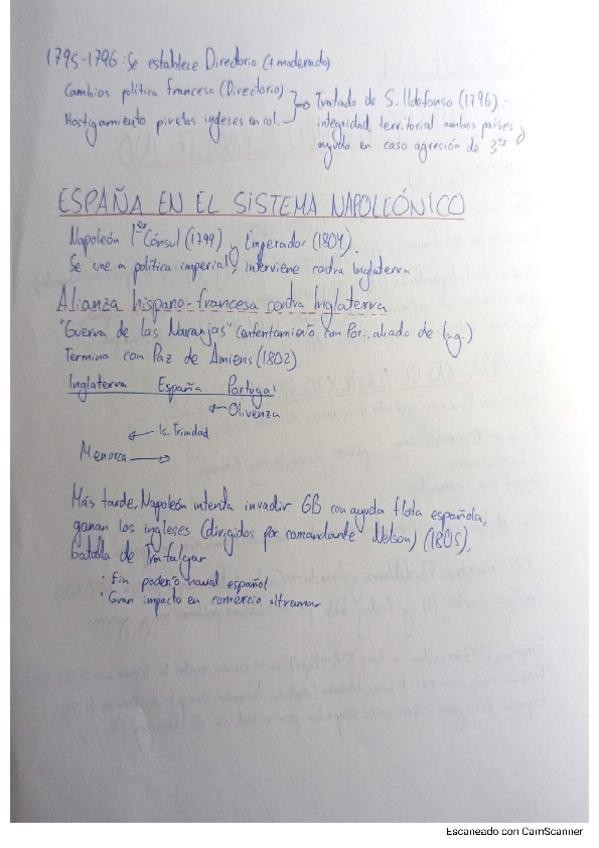 1795-1796: Se establece Directorio (+ moderado)
Cambios política francesa (Directorio)
Hostigamiento piratas ingleses en col.
Tratado de S. Ildefonso (1796):
integridad territorial ambos países y
ayuda en caso agresión de 3os
ESPAÑA EN EL SISTEMA NAPOLEÓNICO
Napoleón 1er Cónsul (1799) y Emperador (1804).
Se une a política imperial, interviene contra Inglaterra
Alianza hispano-francesa contra Inglaterra
"Guerra de las Naranjas" (enfrentamiento con Por., aliado de Ing.)
Termina con Paz de Amiens (1802)
Inglaterra España Portugal
← Olivenza
← Is. Trinidad
Menorca →
Más tarde, Napoleón intenta invadir GB con ayuda flota española,
ganan los ingleses (dirigidos por comandante Nelson) (1805),
batalla de Trafalgar
· Fin poderío naval español
· Gran impacto en comercio ultramar
Escaneado con CamScanner